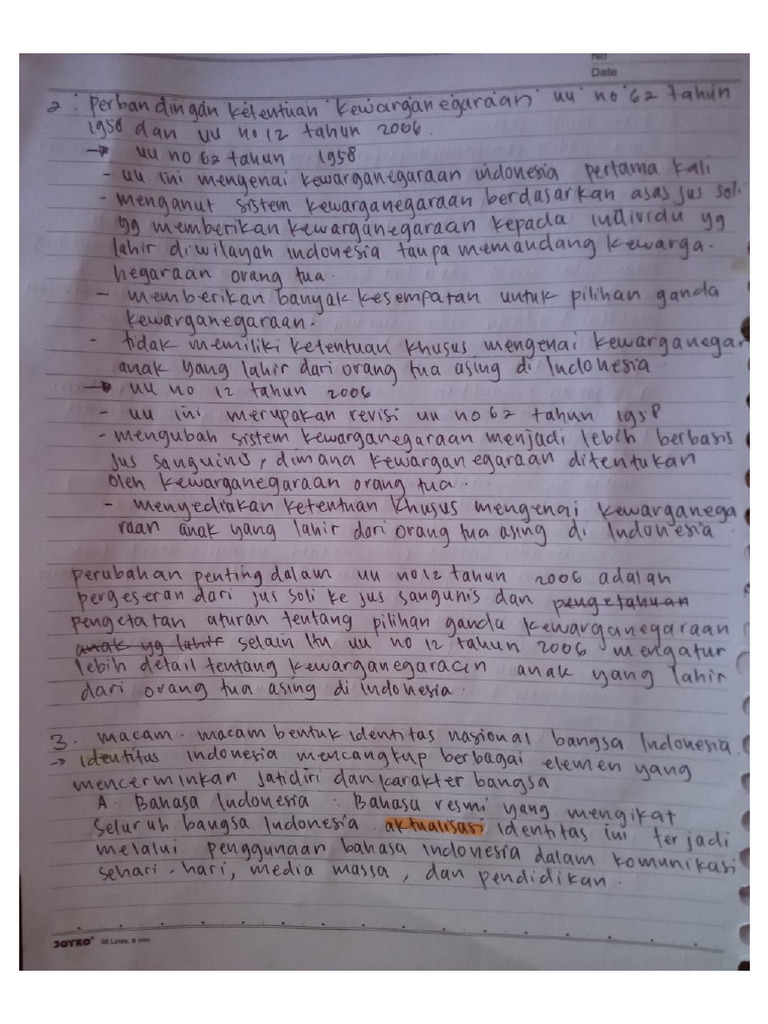 No
Date
2. perbandingan ketentuan kewarganegaraan uu no 62 tahun
1958 dan uu no 12 tahun 2006.
→ uu no 62 tahun 1958
- uu ini mengenai kewarganegaraan indonesia pertama kali
- menganut sistem kewarganegaraan berdasarkan asas jus soli
yg memberikan kewarganegaraan kepada individu yg
lahir diwilayah indonesia tanpa memandang kewarga-
negaraan orang tua.
- memberikan banyak kesempatan untuk pilihan ganda
kewarganegaraan.
- tidak memiliki ketentuan khusus mengenai kewarganegar
anak yang lahir dari orang tua asing di Indonesia
→ uu no 12 tahun 2006
- uu ini merupakan revisi uu no 62 tahun 1958
- mengubah sistem kewarganegaraan menjadi lebih berbasis
jus sanguinis, dimana kewarganegaraan ditentukan
oleh kewarganegaraan orang tua.
- menyediakan ketentuan khusus mengenai kewarganega
raan anak yang lahir dari orang tua asing di Indonesia
perubahan penting dalam uu no 12 tahun 2006 adalah
pergeseran dari jus soli ke jus sangunis dan pengetahuan
pengetatan aturan tentang pilihan ganda kewarganegaraan
anak yg lahir selain itu uu no 12 tahun 2006 mengatur
lebih detail tentang kewarganegaraan anak yang lahir
dari orang tua asing di indonesia.
3. macam-macam bentuk identitas nasional bangsa Indonesia
→ identitas indonesia mencangkup berbagai elemen yang
mencerminkan jatidiri dan karakter bangsa
A. Bahasa Indonesia : Bahasa resmi yang mengikat
seluruh bangsa Indonesia. aktualisasi identitas ini terjadi
melalui penggunaan bahasa indonesia dalam komunikasi
sehari-hari, media massa, dan pendidikan.
JOYKO 36 Lines, 6 mm